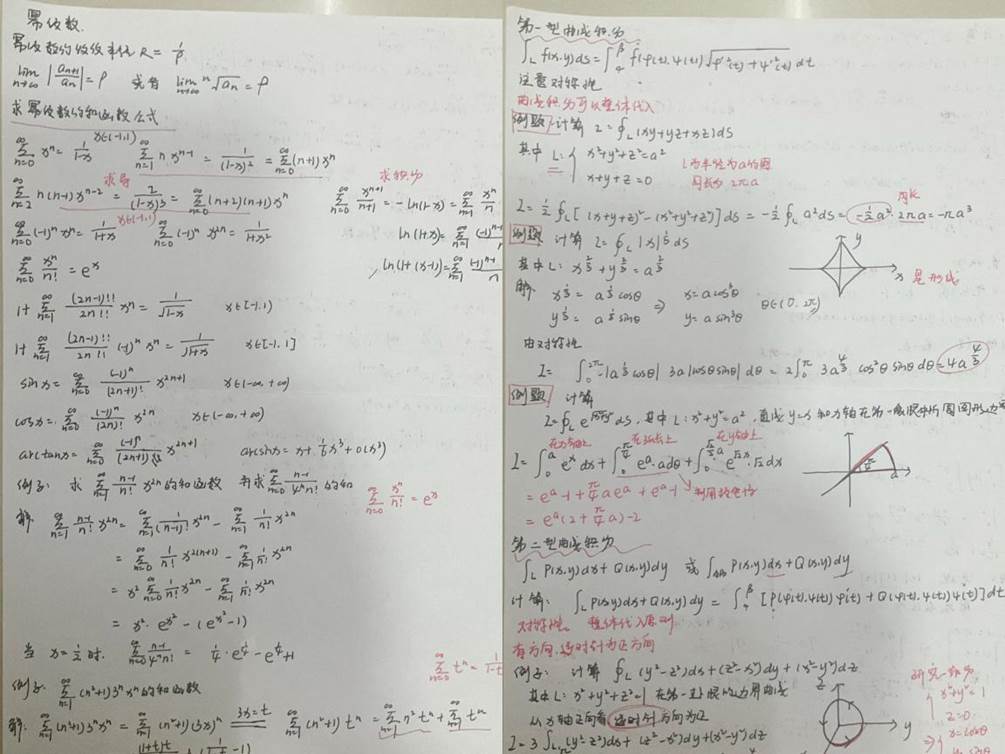 幂级数.
幂级数的收敛半径 R = 1/ρ
lim_{n→∞} |a_{n+1}/a_n| = ρ 或者 lim_{n→∞} ⁿ√a_n = ρ
求幂级数的和函数公式
x∈(-1,1)
∑_{n=0}^∞ x^n = 1/(1-x) ∑_{n=1}^∞ n x^{n-1} = 1/(1-x)² = ∑_{n=0}^∞ (n+1)x^n
求导 求积分
∑_{n=2}^∞ n(n-1)x^{n-2} = 2/(1-x)³ = ∑_{n=0}^∞ (n+2)(n+1)x^n ∑_{n=0}^∞ x^{n+1}/(n+1) = -ln(1-x) = ∑_{n=1}^∞ x^n/n
x∈(-1,1)
∑_{n=0}^∞ (-1)^n x^n = 1/(1+x) ∑_{n=0}^∞ (-1)^n x^{2n} = 1/(1+x²) ln(1+x) = ∑_{n=1}^∞ (-1)^{n-1}
∑_{n=0}^∞ x^n/n! = e^x ln(1+(x-1)) = ∑_{n=1}^∞ (-1)^{n+1}/n
1+ ∑_{n=1}^∞ (2n-1)!!/2n!! x^n = 1/√(1-x) x∈[-1,1)
1+ ∑_{n=1}^∞ (2n-1)!!/2n!! (-1)^n x^n = 1/√(1+x) x∈[-1,1]
sinx = ∑_{n=0}^∞ (-1)^n/(2n+1)! x^{2n+1} x∈(-∞,+∞)
cosx = ∑_{n=0}^∞ (-1)^n/(2n)! x^{2n} x∈(-∞,+∞)
arctanx = ∑_{n=0}^∞ (-1)^n/(2n+1) x^{2n+1} arcsinx = x+ 1/6 x³ + o(x³)
例子: 求 ∑_{n=1}^∞ (n-1)/n! x^{2n} 的和函数 并求 ∑_{n=0}^∞ (n-1)/(4^n n!) 的和
∑_{n=0}^∞ x^n/n! = e^x
解: ∑_{n=1}^∞ (n-1)/n! x^{2n} = ∑_{n=1}^∞ 1/(n-1)! x^{2n} - ∑_{n=1}^∞ 1/n! x^{2n}
= ∑_{n=0}^∞ 1/n! x^{2(n+1)} - ∑_{n=1}^∞ 1/n! x^{2n}
= x² ∑_{n=0}^∞ 1/n! x^{2n} - ∑_{n=1}^∞ 1/n! x^{2n}
= x²· e^{x²} - (e^{x²}-1)
当 x=1/2 时. ∑_{n=1}^∞ (n-1)/(4^n n!) = 1/4 · e^{1/4} - e^{1/4}+1
∑_{n=0}^∞ t^n = 1/(1-t)
例子: ∑_{n=1}^∞ (n²+1)3^n x^n 的和函数
解: ∑_{n=1}^∞ (n²+1)3^n x^n = ∑_{n=1}^∞ (n²+1)(3x)^n 3x=t ∑_{n=1}^∞ (n²+1)t^n = ∑_{n=1}^∞ n²t^n + ∑_{n=1}^∞ t^n
(1+t)t
第一型曲线积分
∫_L f(x,y)ds = ∫_α^β f(φ(t),ψ(t))√(φ'²(t)+ψ'²(t)) dt
注意对称性
曲线积分可以整体代入
例题 计算 I = ∮_L (xy+yz+xz)ds
其中 L: { x²+y²+z²=a² L为半径为a的圆
x+y+z=0 周长为 2πa
周长
I = 1/2 ∮_L [(x+y+z)²-(x²+y²+z²)]ds = -1/2 ∮_L a²ds = -1/2 a²· 2πa = -πa³
例题 计算 I=∮_L |x|^{1/3} ds
其中L: x^{2/3}+y^{2/3}=a^{2/3} y x 星形线
解: x^{1/3} = a^{1/3}cosθ ⇒ x=acos³θ θ∈(0,2π)
y^{1/3} = a^{1/3}sinθ y=asin³θ
由对称性
I= ∫_0^{2π} |a^{1/3}cosθ| 3a|cosθsinθ| dθ = 2∫_0^π 3a^{4/3} cos²θ sinθ dθ = 4a^{4/3}
例题 计算
I=∮_L e^{√(x²+y²)} ds, 其中 L: x²+y²=a², 直线 y=x 和x轴在第一象限中所围图形
在x轴上 在弧长上 在y轴上
I= ∫_0^a e^x dx + ∫_0^{π/4} e^a·adθ + ∫_0^{√2/2 a} e^{√2x}·√2dx a
= e^a-1+π/4 ae^a+e^a-1
= e^a(2+π/4 a)-2
第二型曲线积分
∫_L P(x,y)dx+Q(x,y)dy 或 ∫_{AB} P(x,y)dx+Q(x,y)dy
计算: ∫_L P(x,y)dx+Q(x,y)dy = ∫_α^β [P(φ(t),ψ(t))φ'(t) + Q(φ(t),ψ(t))ψ'(t)]dt
对称性. 整体代入原则
有方向,逆时针为正方向
例子: 计算 ∮_L (y²-z²)dx+(z²-x²)dy+(x²-y²)dz
其中L: x²+y²+z²=1 在第一卦限的边界曲线
从x轴正向看逆时针方向为正
z y
x²+y²=1
z=0
x=cosθ
y=sinθ
I=3∫_{L} (y²-z²)dx+(z²-x²)dy+(x²-y²)dz